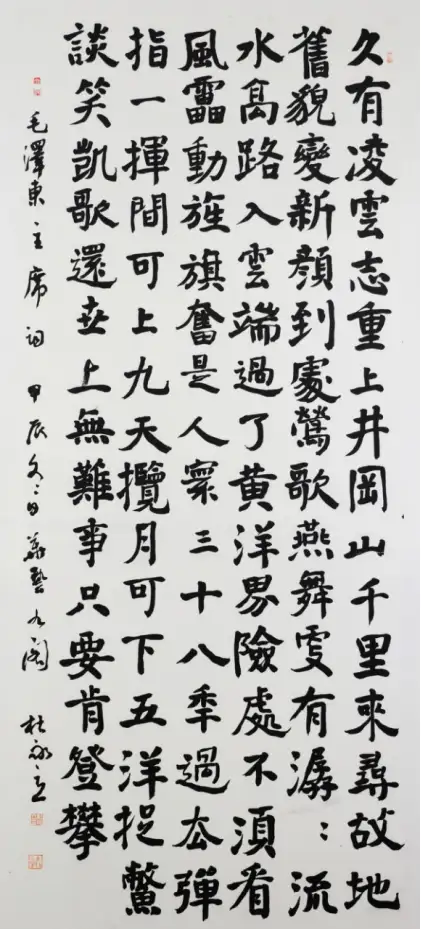 久有凌雲志重上井岡山千里來尋故地
舊貌變新顏到處鶯歌燕舞更有潺:流
水高路入雲端過了黃洋界險處不須看
風靁動旌旗奮是人寰三十八秊過厺彈
指一揮間可上九天攬月可下五洋捉鱉
談笑凱歌還世上無難事只要肯登攀
毛澤東主席词 甲辰冬 日 藝 閣 杜